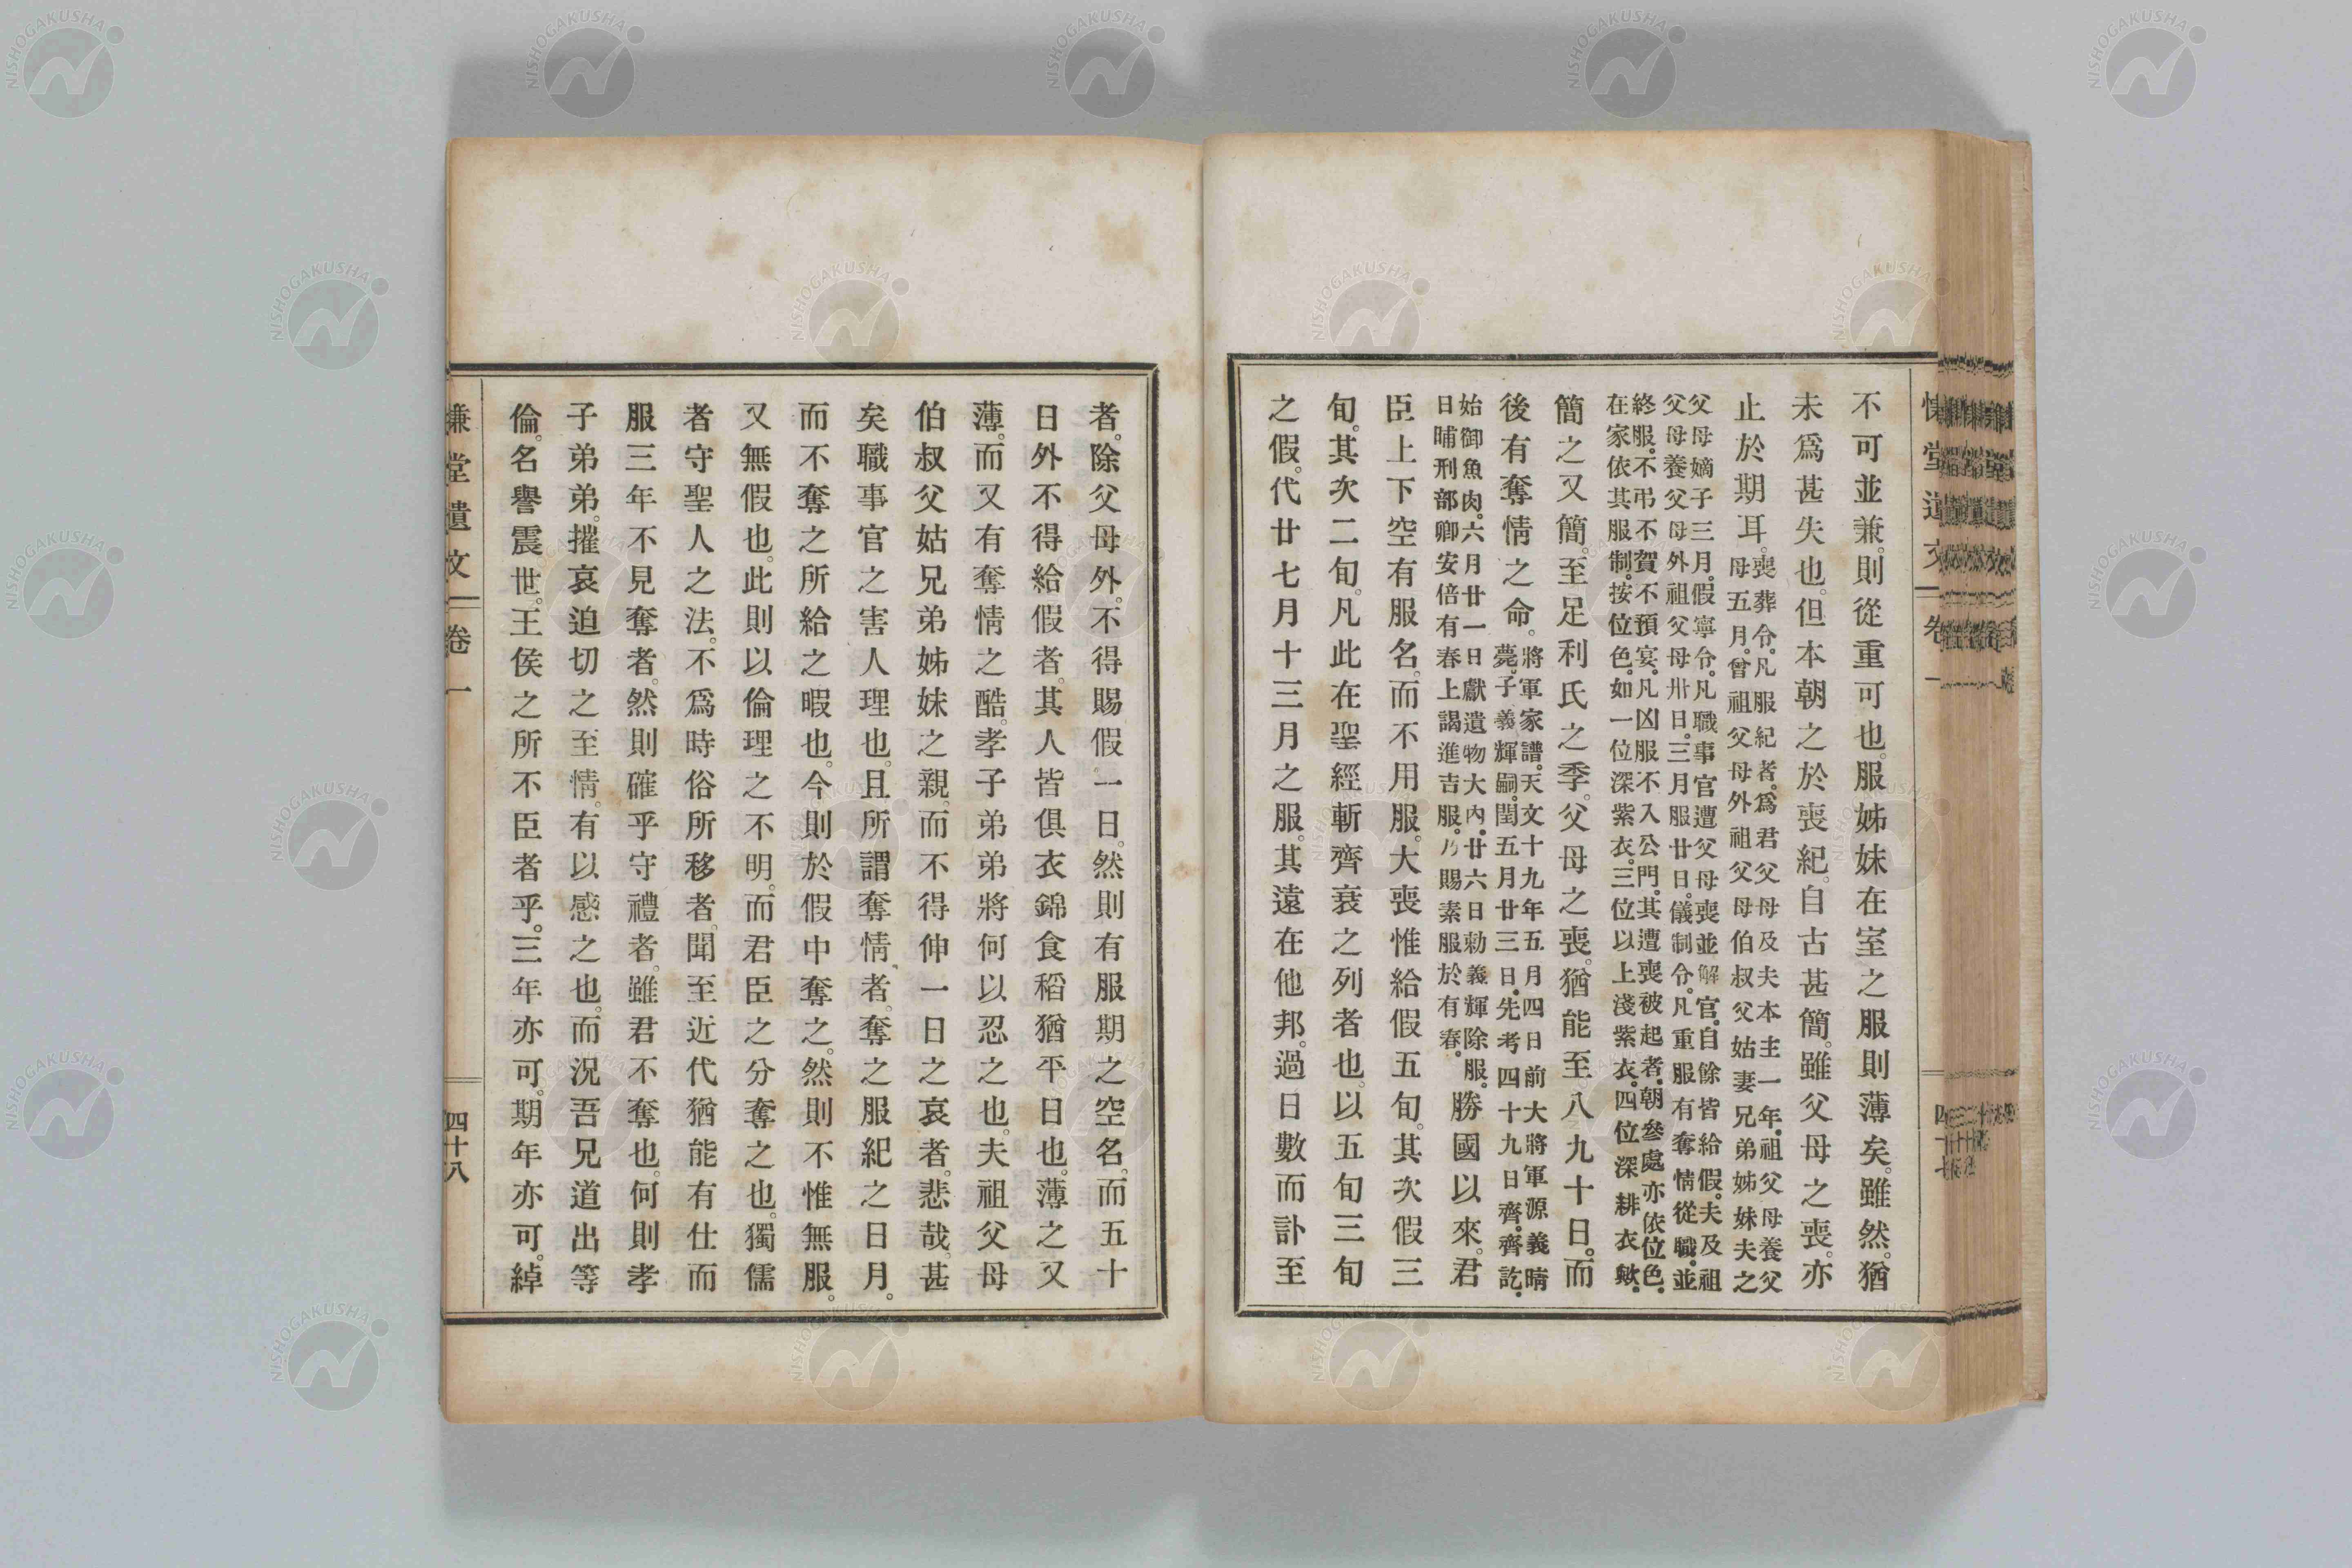 不可並兼。則從重可也。服姊妹在室之服則薄矣。雖然。猶
未爲甚失也。但本朝之於喪紀。自古甚簡。雖父母之喪。亦
止於期耳。喪葬令。凡服紀者。爲君父母及夫本主一年。祖父母養父
母五月。曾祖父母外祖父母伯叔父姑妻兄弟姊妹夫之
父母嫡子三月。假寧令。凡職事官遭父母喪並解官。自餘皆給假。夫及祖
父母養父母外祖父母卅日。三月服廿日。儀制令。凡重服有奪情從職。並
終服。不弔不賀不預宴。凡凶服不入公門。其遭喪被起者。朝參處亦依位色。
在家依其服制。按位色。如一位深紫衣。三位以上淺紫衣。四位深緋衣歟。
簡之又簡。至足利氏之季。父母之喪。猶能至八九十日。而
後有奪情之命。將軍家譜。天文十九年五月四日前大將軍源義晴
薨。子義輝嗣。閏五月廿三日。先考四十九日齊。齊訖。
始御魚肉。六月廿一日獻遺物大內。廿六日勅義輝除服。
日晡刑部卿安倍有春上謁進吉服。乃賜素服於有春。
勝國以來。君
臣上下空有服名。而不用服。大喪惟給假五旬。其次假三
旬。其次二旬。凡此在聖經斬齊衰之列者也。以五旬三旬
之假。代廿七月十三月之服。其遠在他邦。過日數而訃至
慊堂遺文 卷一 四十七
者。除父母外。不得賜假一日。然則有服期之空名。而五十
日外不得給假者。其人皆俱衣錦食稻猶平日也。薄之又
薄。而又有奪情之酷。孝子弟弟將何以忍之也。夫祖父母
伯叔父姑兄弟姊妹之親。而不得伸一日之哀者。悲哉。甚
矣職事官之害人理也。且所謂奪情者。奪之服紀之日月。
而不奪之所給之暇也。今則於假中奪之。然則不惟無服。
又無假也。此則以倫理之不明。而君臣之分奪之也。獨儒
者守聖人之法。不爲時俗所移者。聞至近代猶能有仕而
服三年不見奪者。然則確乎守禮者。雖君不奪也。何則孝
子弟弟。摧哀迫切之至情。有以感之也。而況吾兄道出等
倫。名譽震世。王侯之所不臣者乎。三年亦可。期年亦可。綽
慊堂遺文 卷一 四十八